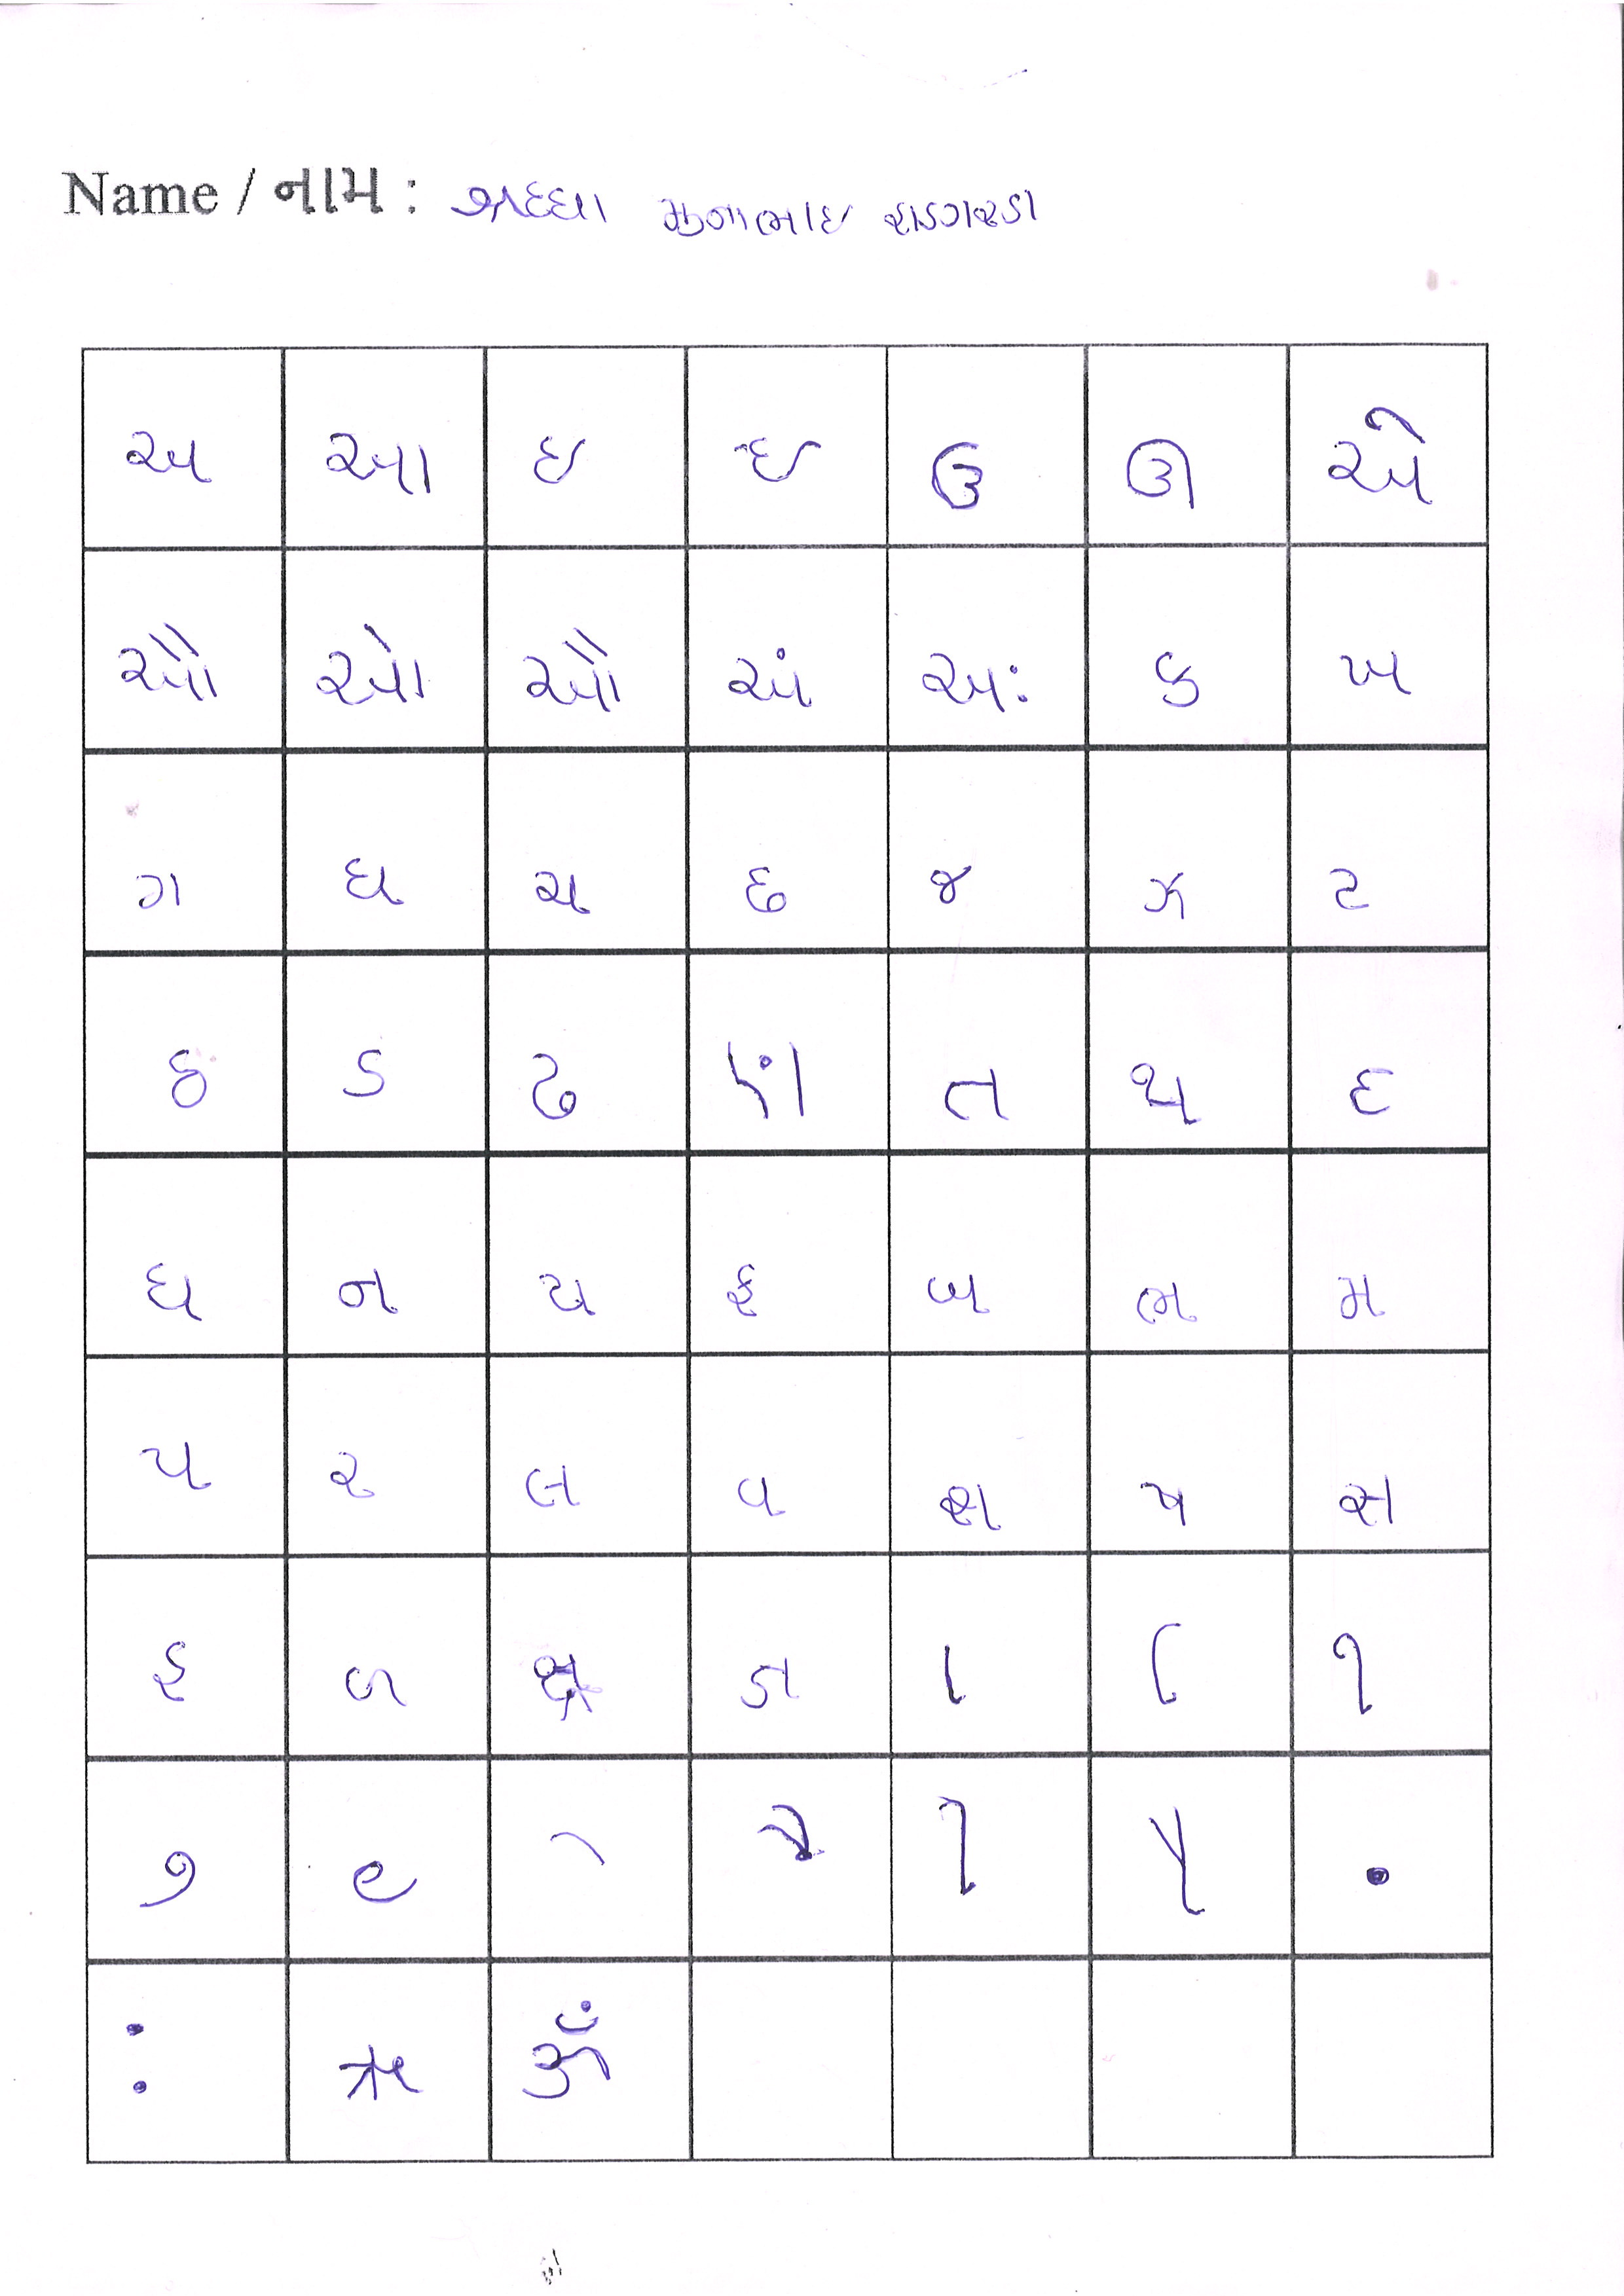 Name / નામ :
અ આ ઇ ઈ ઉ ઊ એ
ઔ ઓ ઔ અં અઃ ક ખ
ગ ઘ ચ છ જ ઝ ટ
ઠ ડ ઢ ણ ત થ દ
ધ ન પ ફ બ ભ મ
ય ર લ વ શ ષ સ
હ ળ ક્ષ જ્ઞ ા િ ી
ુ ૃ ે ૈ ો ૌ ં
ઃ ઋ ૐ